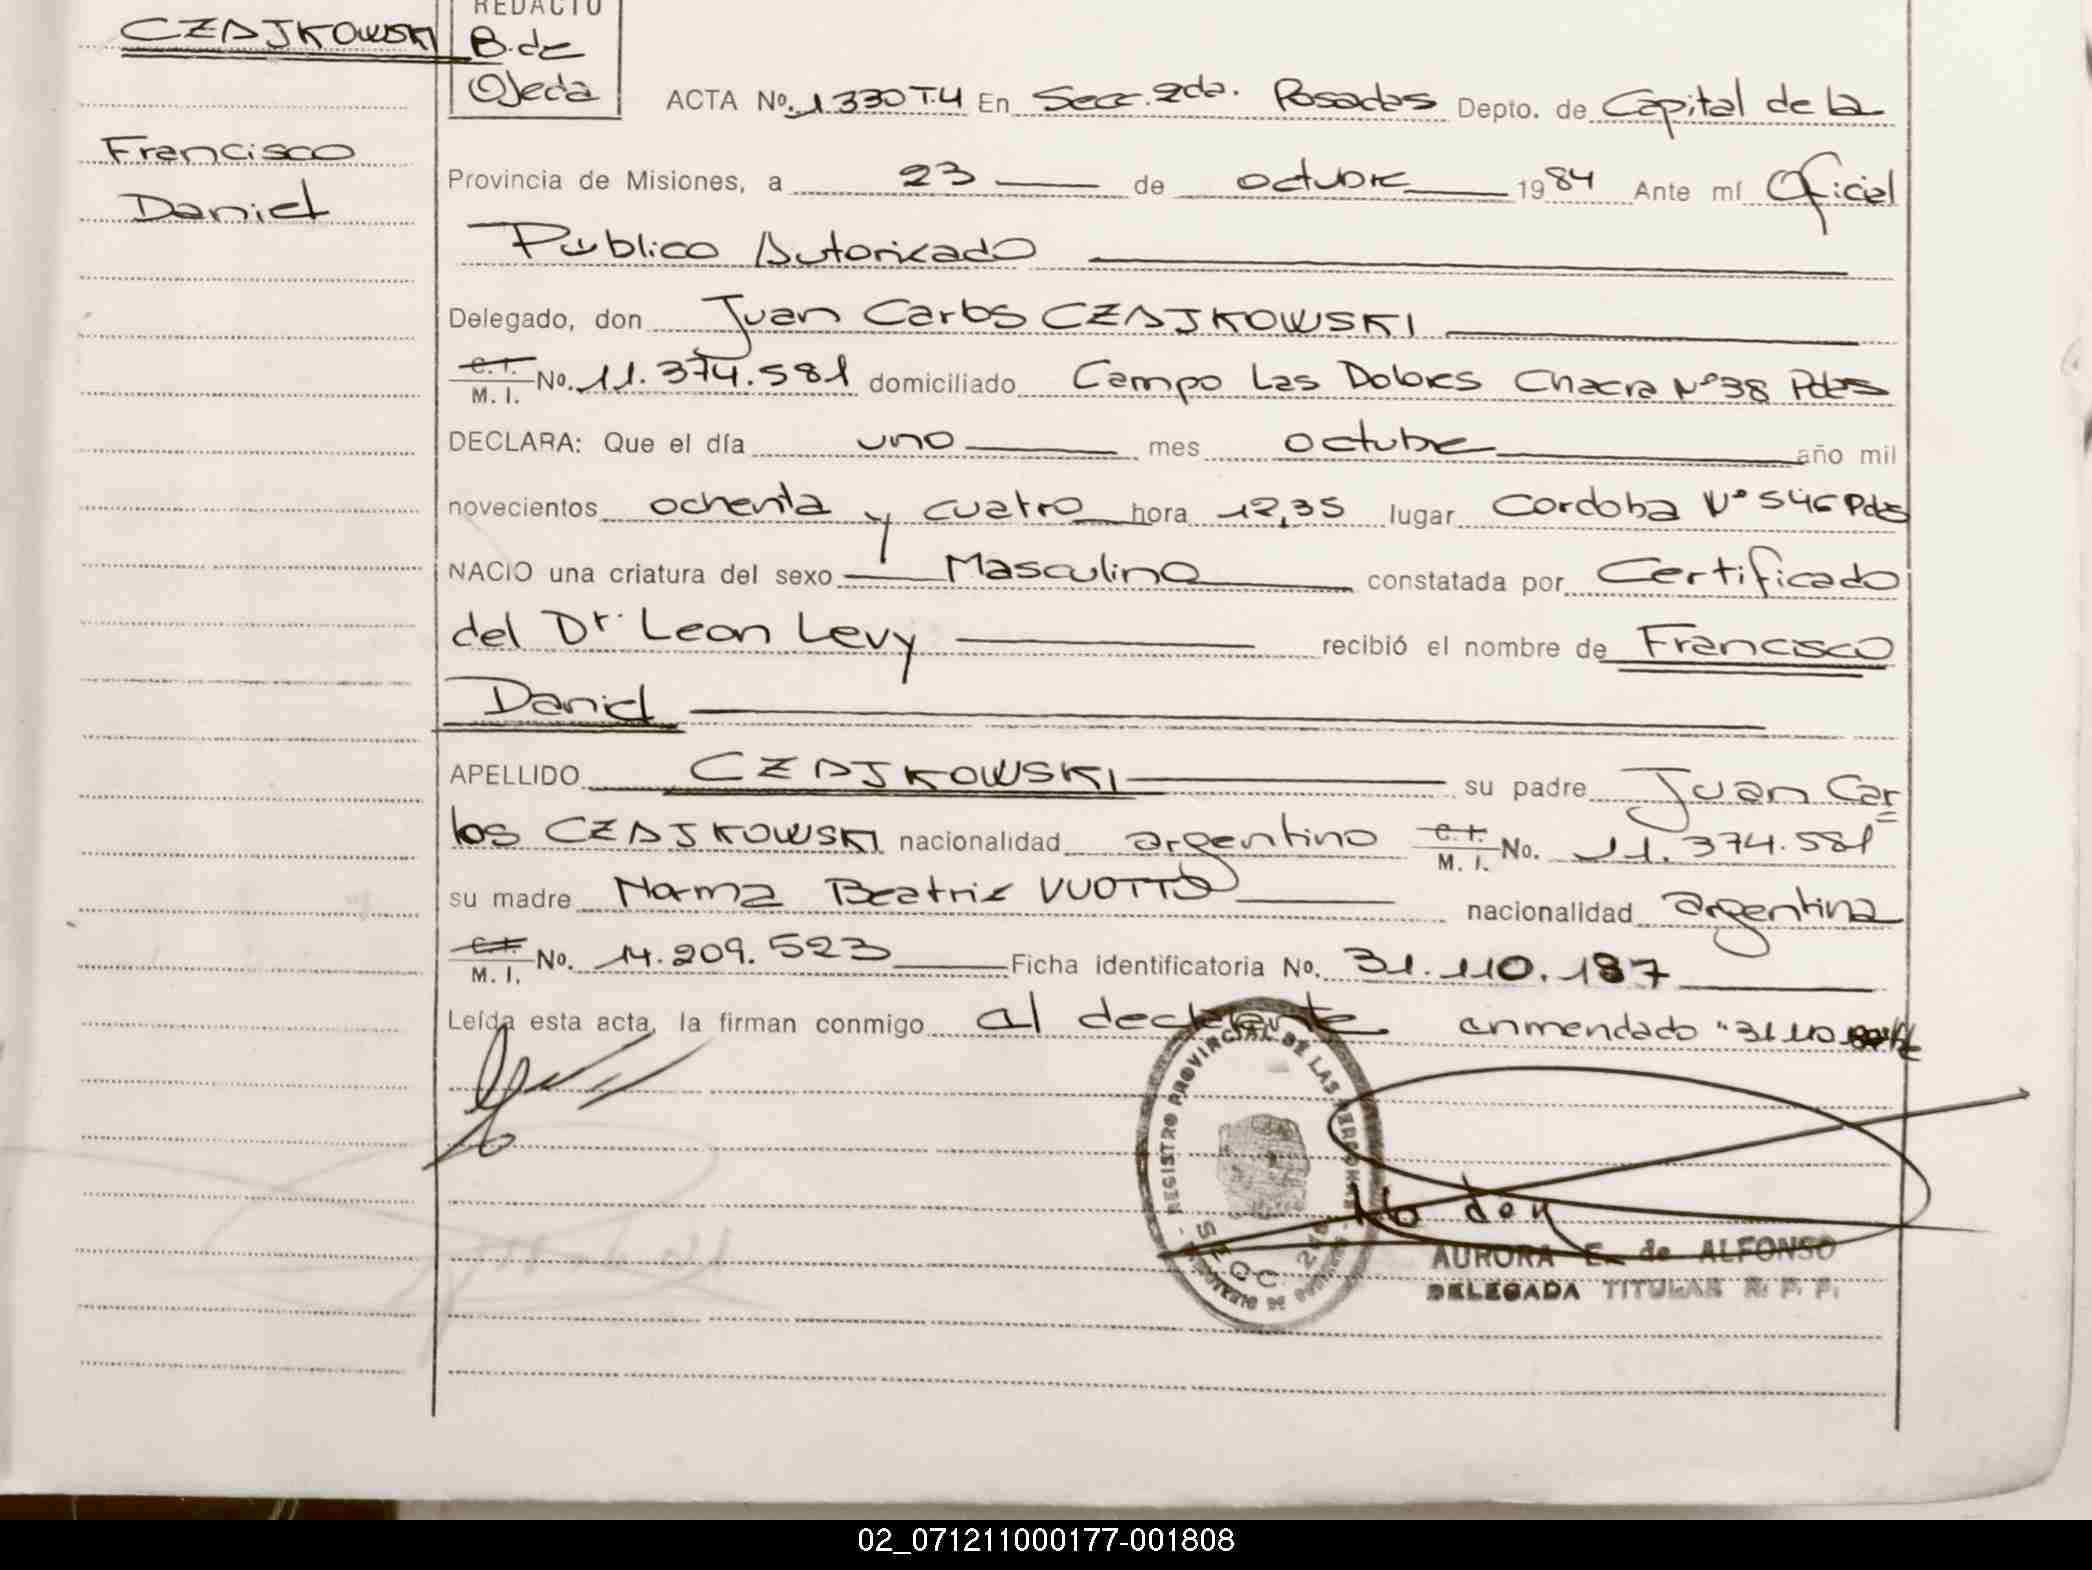 CZAJKOWSKI
Francisco
Daniel
REDACTO
B. de
Ojeda
ACTA No. 1330 T.4 En Secc. 2da. Posadas Depto. de Capital de la
Provincia de Misiones, a 23 de octubre 1984 Ante mí Oficial
Público Autorizado
Delegado, don Juan Carlos CZAJKOWSKI
C.I. M.I. No. 11.374.581 domiciliado Campo Las Dolores Chacra Nº 38 Pdas
DECLARA: Que el día uno mes octubre año mil
novecientos ochenta y cuatro hora 12,35 lugar Cordoba Nº 546 Pdas
NACIO una criatura del sexo Masculino constatada por Certificado
del Dr. Leon Levy recibió el nombre de Francisco
Daniel
APELLIDO CZAJKOWSKI su padre Juan Car
los CZAJKOWSKI nacionalidad argentino C.I. M.I. No. 11.374.581
su madre Norma Beatriz VUOTTO nacionalidad argentina
C.I. M.I. No. 14.209.523 Ficha identificatoria No. 31.110.187
Leída esta acta, la firman conmigo al declarante enmendado "31.110.
REGISTRO PROVINCIAL DE LAS PERSONAS
SECC 2da
AURORA E. de ALFONSO
DELEGADA TITULAR R. P. P.
02_071211000177-001808